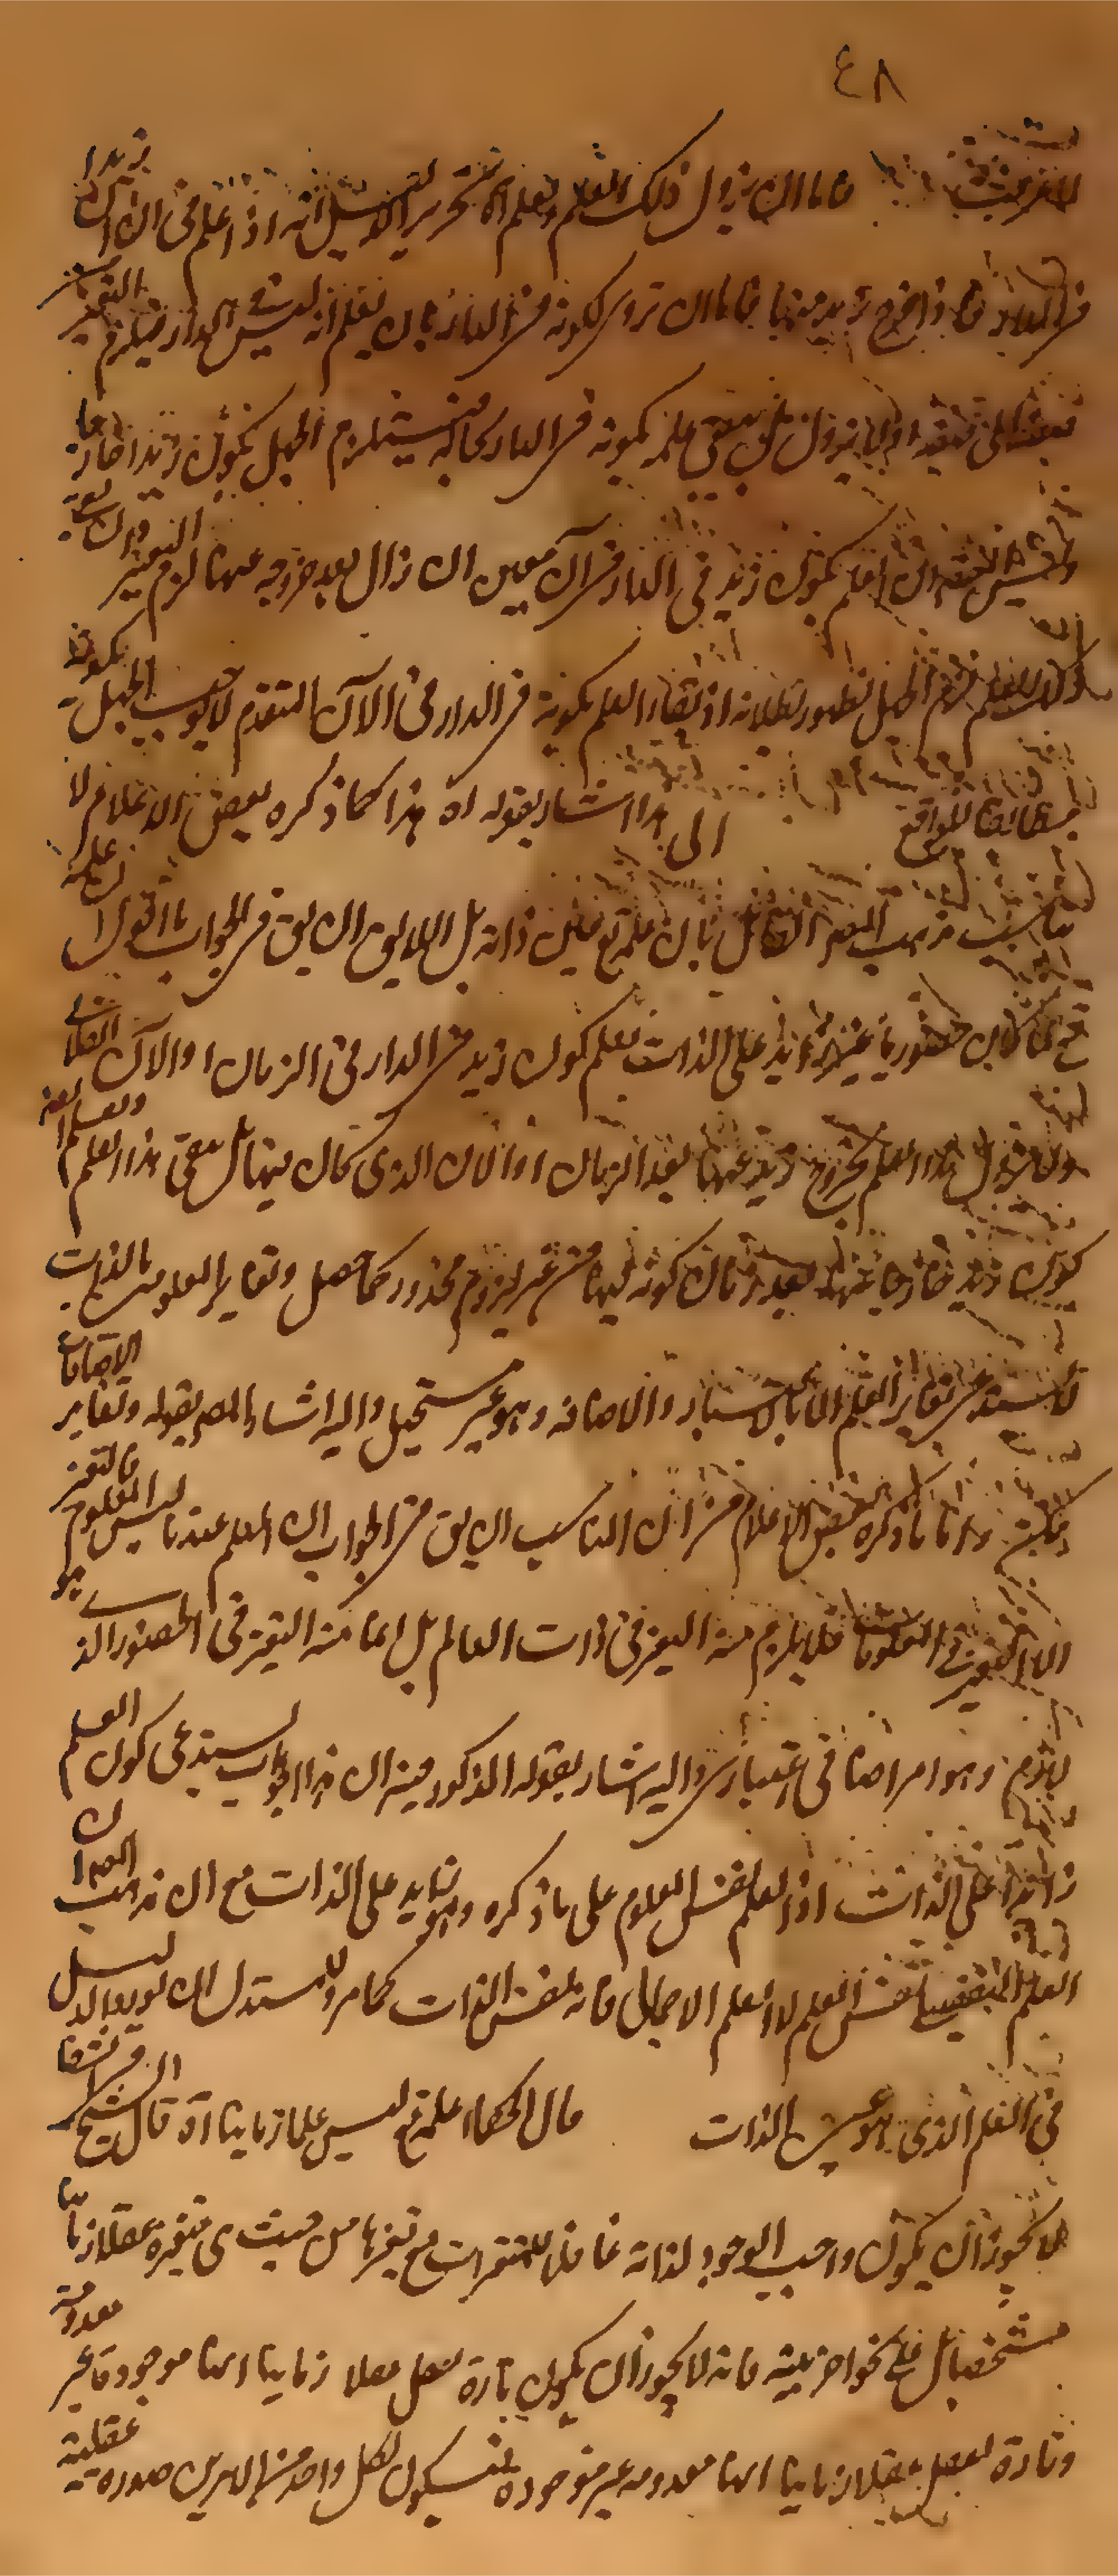 ٤٨
فاما ان يزول ذلك العلم ويعلم اه تحرير الدليل انه اذا علم فى الان ان زيدا
فى الدار فاذا خرج زيد منها فاما ان يزول كونه فى الدار بان يعلم انه ليس فى الدار فيلزم التغير
من صفة الى صفة او لا يزول بل يبقى علمه بكونه فى الدار بحاله فيستلزم الجهل بكون زيد خارجا
العلم بكون زيد فى الدار فى آن معين ان زال بعد خروجه عنها لزم التغير وان بقى
ذلك العلم لزم الجهل لظهور بطلانه اذ بقاء العلم بكونه فى الدار فى الآن المتقدم لا يوجب الجهل لكونه
مطابقا للواقع الى هذا اشار بقوله اه هذا كما ذكره بعض الاعلام لا
يناسب مذهب المصر القائل بان علمه تع عين ذاته بل اللايق ان يق فى الجواب ما اقول ان علمه
تع لما كان حضوريا غير زايد على الذات يعلم كون زيد فى الدار فى الزمان او الآن الفلانى
ولا يزول هذا العلم بخروج زيد عنها بعد الزمان او الان الذى كان فيها بل يبقى هذا العلم ويعلم ايضا
كون زيد خارجا عنها بعد زمان كونه فيها من غير لزوم محذور كما حصل وتغاير المعلومات بالذات
لا يستدعى تغاير العلم الا بالاعتبار والاضافه وهو غير مستحيل واليه اشار المصر بقوله وتغاير الاضافات
ممكن واما ما ذكره بعض الاعلام من ان المناسب ان يق فى الجواب ان العلم عندنا ليس المعلوم فالتغير هو
الا التغير فى المعلومات فلا يلزم منه التغير فى ذات العالم بل انما منه التغير فى الحضور الذى
يلزم وهو امر اضافى اعتبارى واليه اشار بقوله المذكور ففيه ان هذا الجواب يستدعى كون العلم
زائدا على الذات اذ العلم نفس المعلوم على ما ذكره وهو زايد على الذات مع ان مذهب المصر ان
العلم التفصيلى نفس العلم لا العلم الاجمالى فانه نفس الذات كما مر وللمستدل ان يورد الدليل
فى العلم الذى هو عين الذات قال الحكماء علمه تع ليس علما زمانيا اه قال الشيخ فى الشفا
لا يجوز ان يكون واجب الوجود لذاته عاقلا للمتغيرات مع تغيرها من حيث هى متغيرة عقلا زمانيا
مشخصا بل على نحو اخر نبينه فانه لا يجوز ان يكون تارة يعقل عقلا زمانيا انها موجودة غير معدومة
وتارة يعقل عقلا زمانيا انها معدومه غير موجوده فيكون لكل واحد من الامرين صورة عقلية